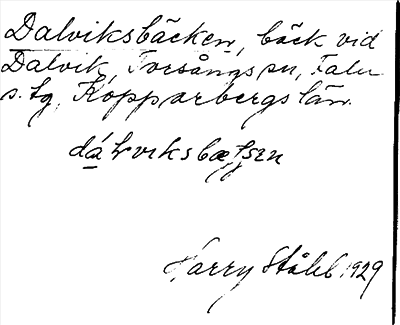 Dalviksbäcken, bäck vid
Dalvik, Torsångs sn, Falu
s. tg, Kopparbergs län.
Harry Ståhl 1929